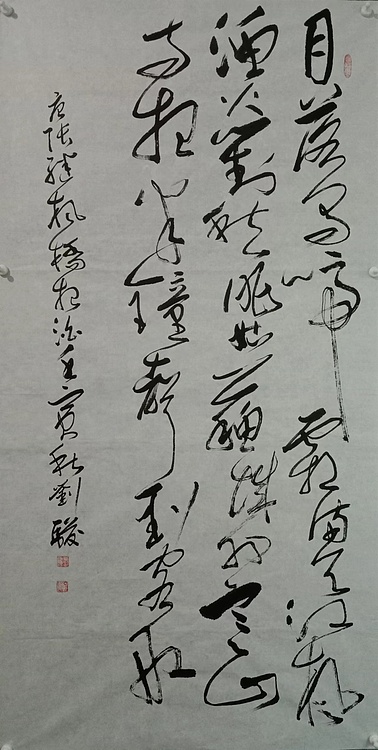 月落烏啼霜滿天江楓
漁火對愁眠姑蘇城外寒山
寺夜半鐘聲到客船
唐張繼楓橋夜泊壬寅秋劉駿